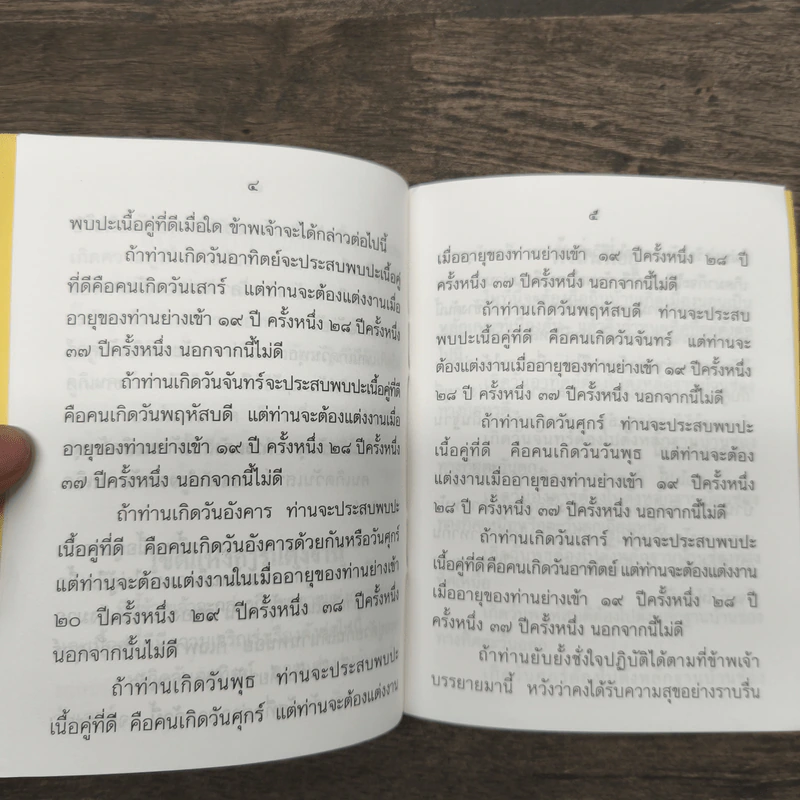 ๔
พบปะเนื้อคู่ที่ดีเมื่อใด ข้าพเจ้าจะได้กล่าวต่อไปนี้
ถ้าท่านเกิดวันอาทิตย์จะประสบพบปะเนื้อคู่
ที่ดีคือคนเกิดวันเสาร์ แต่ท่านจะต้องแต่งงานเมื่อ
อายุของท่านย่างเข้า ๑๙ ปี ครั้งหนึ่ง ๒๘ ปีครั้งหนึ่ง
๓๗ ปีครั้งหนึ่ง นอกจากนี้ไม่ดี
ถ้าท่านเกิดวันจันทร์จะประสบพบปะเนื้อคู่ที่ดี
คือคนเกิดวันพฤหัสบดี แต่ท่านจะต้องแต่งงานเมื่อ
อายุของท่านย่างเข้า ๑๙ ปี ครั้งหนึ่ง ๒๘ ปีครั้งหนึ่ง
๓๗ ปีครั้งหนึ่ง นอกจากนี้ไม่ดี
ถ้าท่านเกิดวันอังคาร ท่านจะประสบพบปะ
เนื้อคู่ที่ดี คือคนเกิดวันอังคารด้วยกันหรือวันศุกร์
แต่ท่านจะต้องแต่งงานในเมื่ออายุของท่านย่างเข้า
๒๐ ปีครั้งหนึ่ง ๒๙ ปีครั้งหนึ่ง ๓๘ ปีครั้งหนึ่ง
นอกจากนั้นไม่ดี
ถ้าท่านเกิดวันพุธ ท่านจะประสบพบปะ
เนื้อคู่ที่ดี คือคนเกิดวันศุกร์ แต่ท่านจะต้องแต่งงาน
๕
เมื่ออายุของท่านย่างเข้า ๑๙ ปีครั้งหนึ่ง ๒๘ ปี
ครั้งหนึ่ง ๓๗ ปีครั้งหนึ่ง นอกจากนี้ไม่ดี
ถ้าท่านเกิดวันพฤหัสบดี ท่านจะประสบ
พบปะเนื้อคู่ที่ดี คือคนเกิดวันจันทร์ แต่ท่านจะ
ต้องแต่งงานเมื่ออายุของท่านย่างเข้า ๑๙ ปีครั้งหนึ่ง
๒๘ ปีครั้งหนึ่ง ๓๗ ปีครั้งหนึ่ง นอกจากนี้ไม่ดี
ถ้าท่านเกิดวันศุกร์ ท่านจะประสบพบปะ
เนื้อคู่ที่ดี คือคนเกิดวันวันพุธ แต่ท่านจะต้อง
แต่งงานเมื่ออายุของท่านย่างเข้า ๑๙ ปีครั้งหนึ่ง
๒๘ ปี ครั้งหนึ่ง ๓๗ ปีครั้งหนึ่ง นอกจากนี้ไม่ดี
ถ้าท่านเกิดวันเสาร์ ท่านจะประสบพบปะ
เนื้อคู่ที่ดี คือคนเกิดวันอาทิตย์ แต่ท่านจะต้องแต่งงาน
เมื่ออายุของท่านย่างเข้า ๑๙ ปีครั้งหนึ่ง ๒๘ ปี
ครั้งหนึ่ง ๓๗ ปีครั้งหนึ่ง นอกจากนี้ไม่ดี
ถ้าท่านยับยั้งชั่งใจปฏิบัติได้ตามที่ข้าพเจ้า
บรรยายมานี้ หวังว่าคงได้รับความสุขอย่างราบรื่น